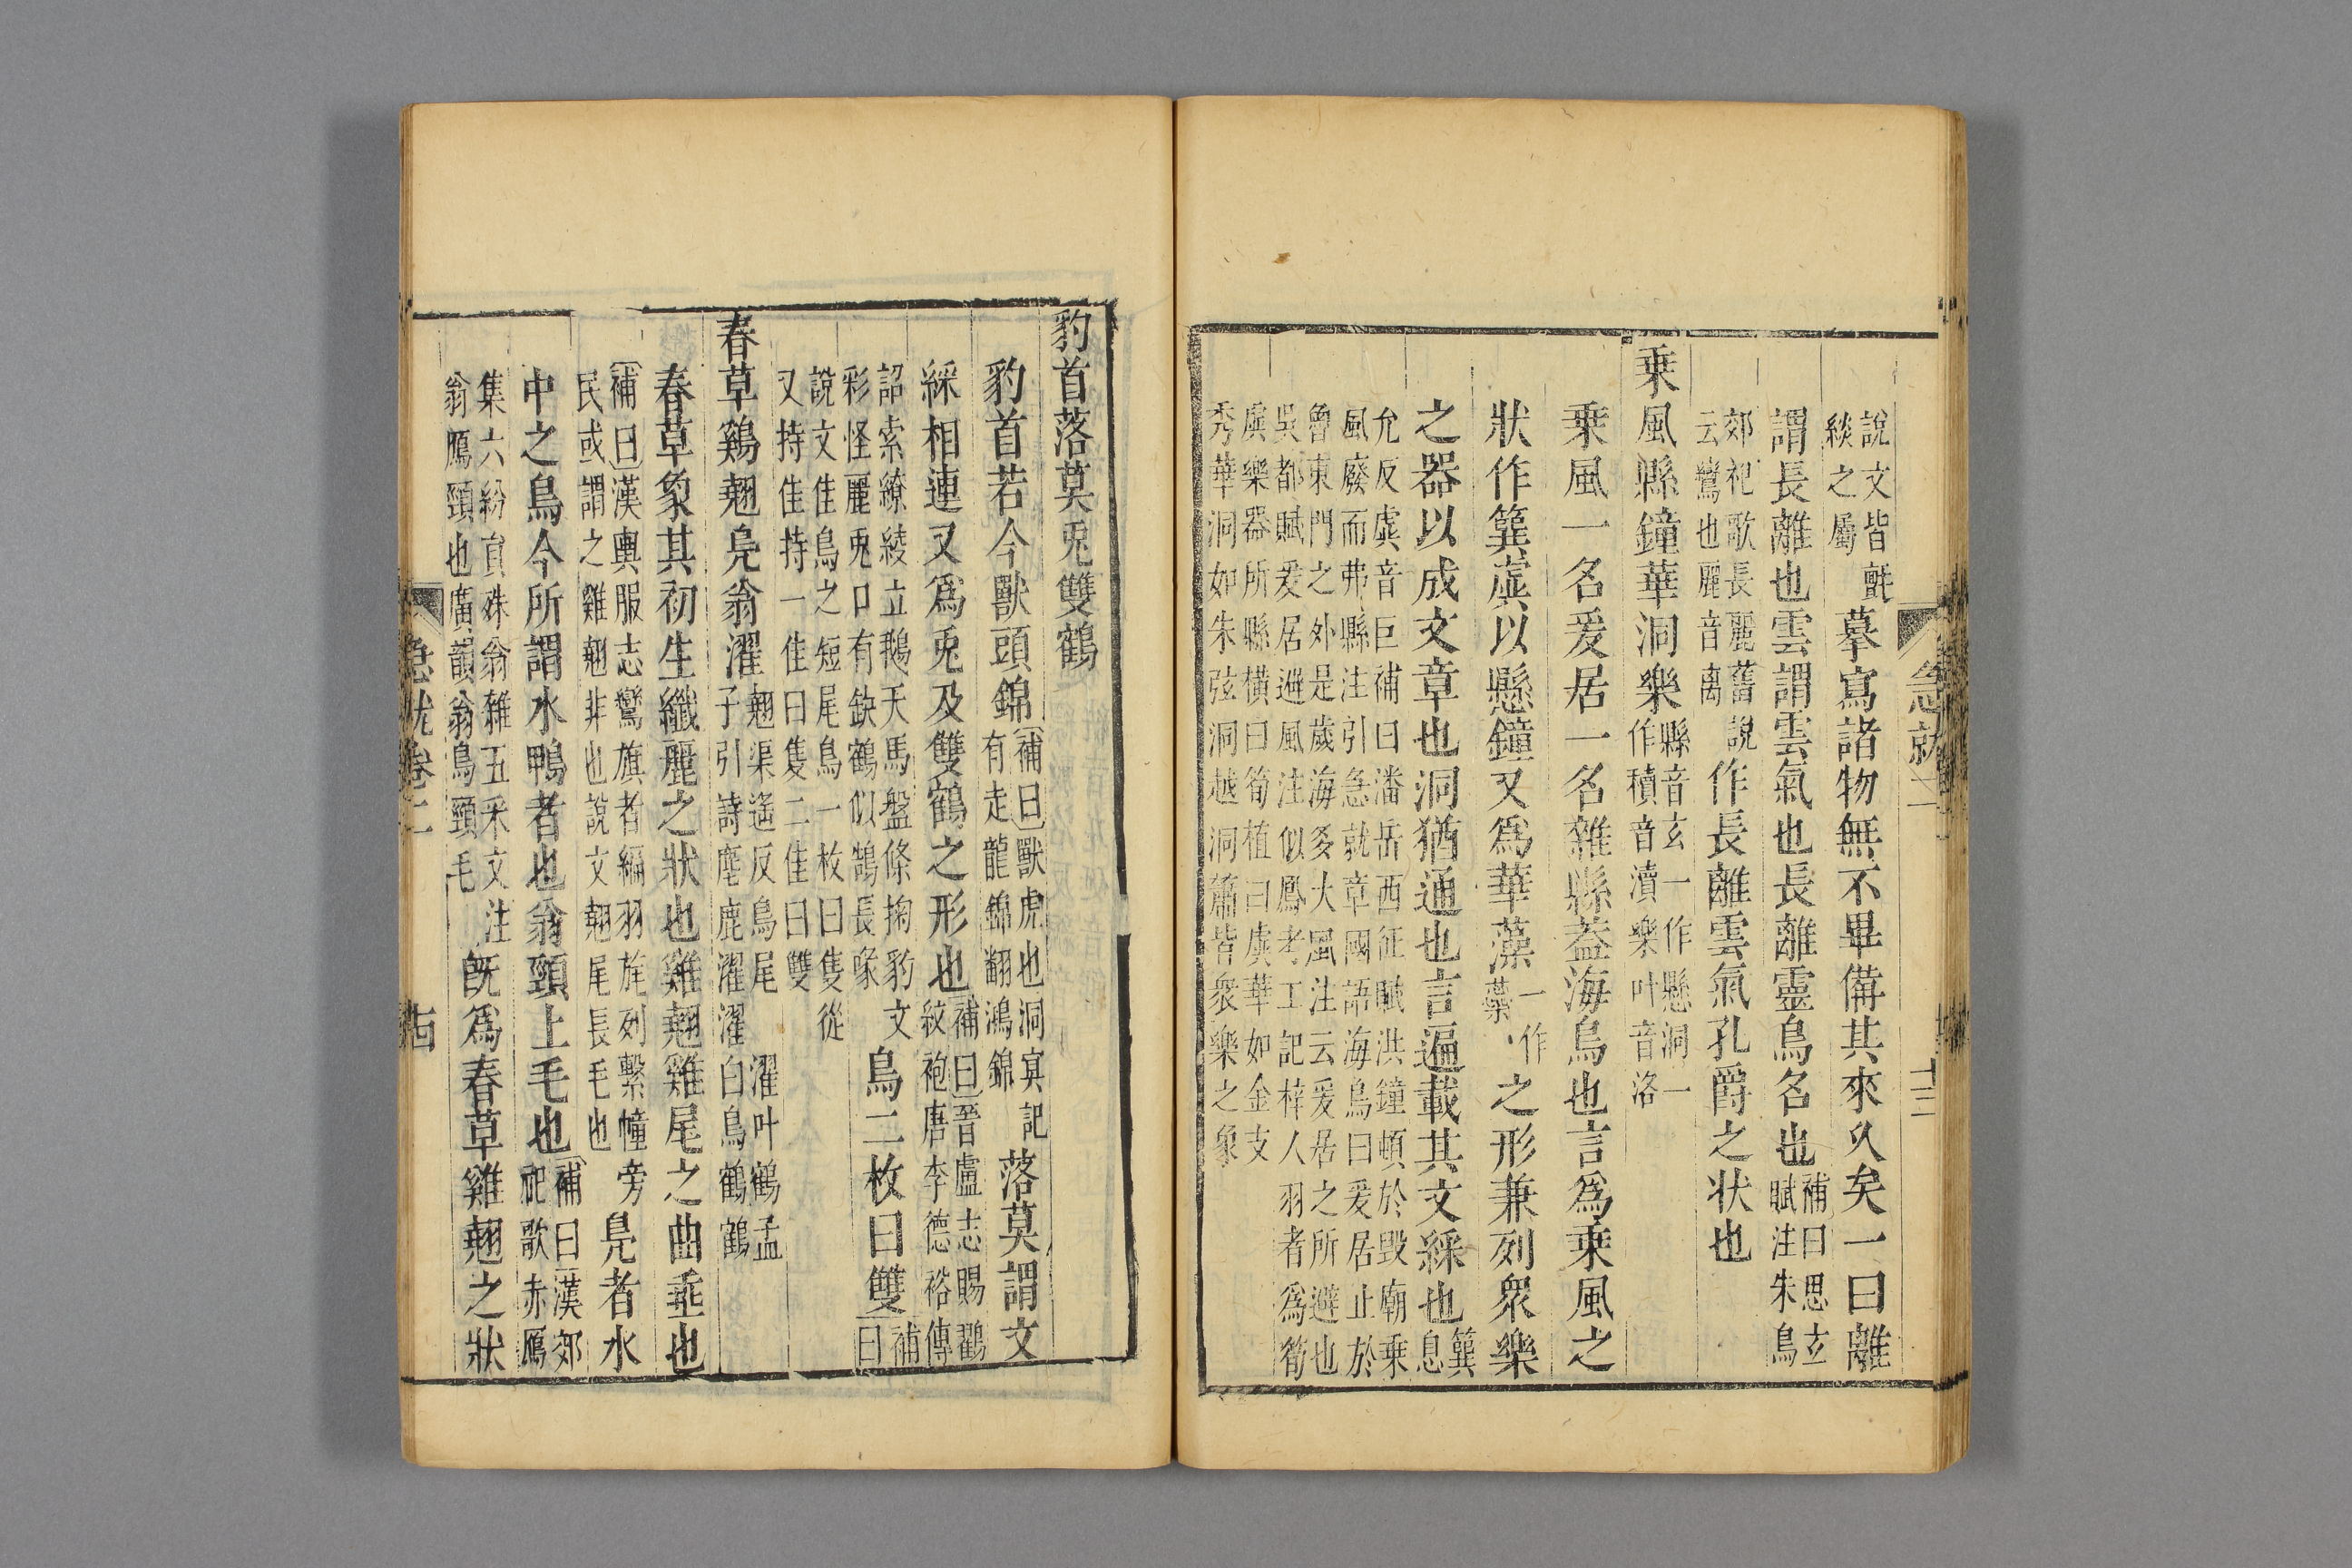 急就一
十三
說文皆氈
緂之屬
摹寫諸物無不畢備其來久矣一曰離
謂長離也雲謂雲氣也長離靈鳥名也
補曰思玄
賦注朱鳥
郊祀歌長麗舊說
云鸞也麗音离
作長離雲氣孔爵之状也
乗風縣鐘華洞樂
縣音玄一作懸洞一
作䡱音瀆樂叶音洛
乗風一名爰居一名雜縣葢海鳥也言爲乗風之
狀作簨虡以懸鐘又爲華藻
一作
蘂
之形兼列衆樂
之器以成文章也洞猶通也言遍載其文綵也
簨
息
允反虡音巨補曰潘岳西征賦洪鐘頓於毀廟乗
風廢而弗縣注引急就章國語海鳥曰爰居止於
魯東門之外是歲海多大風注云爰居之所避也
吳都賦爰居避風注似鳳考工記梓人羽者爲筍
虡樂器所縣橫曰筍植曰虡華如金支
秀華洞如朱弦洞越洞蕭皆衆樂之象
豹首落莫兎雙鶴
豹首若今獸頭錦
補曰獸虎也洞冥記
有走龍錦翻鴻錦
落莫謂文
綵相連又爲兎及雙鶴之形也
補曰晉盧志賜鸐
紋袍唐李德裕傳
詔索繚綾立鵝天馬盤絛掬豹文
彩怪麗兎口有缺鶴似鵠長喙
鳥二枚曰雙
補
曰
說文隹鳥之短尾鳥一枚曰隻從
又持隹持一隹曰隻二隹曰雙
春草鷄翹鳧翁濯
翹渠遙反鳥尾 濯叶鶴孟
子引詩麀鹿濯濯白鳥鶴鶴
春草象其初生纖麗之狀也雞翹雞尾之曲垂也
補曰漢輿服志鸞旗者編羽旄列繫幢旁
民或謂之雞翹非也說文翹尾長毛也
鳧者水
中之鳥今所謂水鴨者也翁頸上毛也
補曰漢郊
祀歌赤鴈
集六紛員殊翁雜五采文注
翁鴈頸也廣韻翁鳥頸毛
旣爲春草雞翹之狀
急就卷二
十四